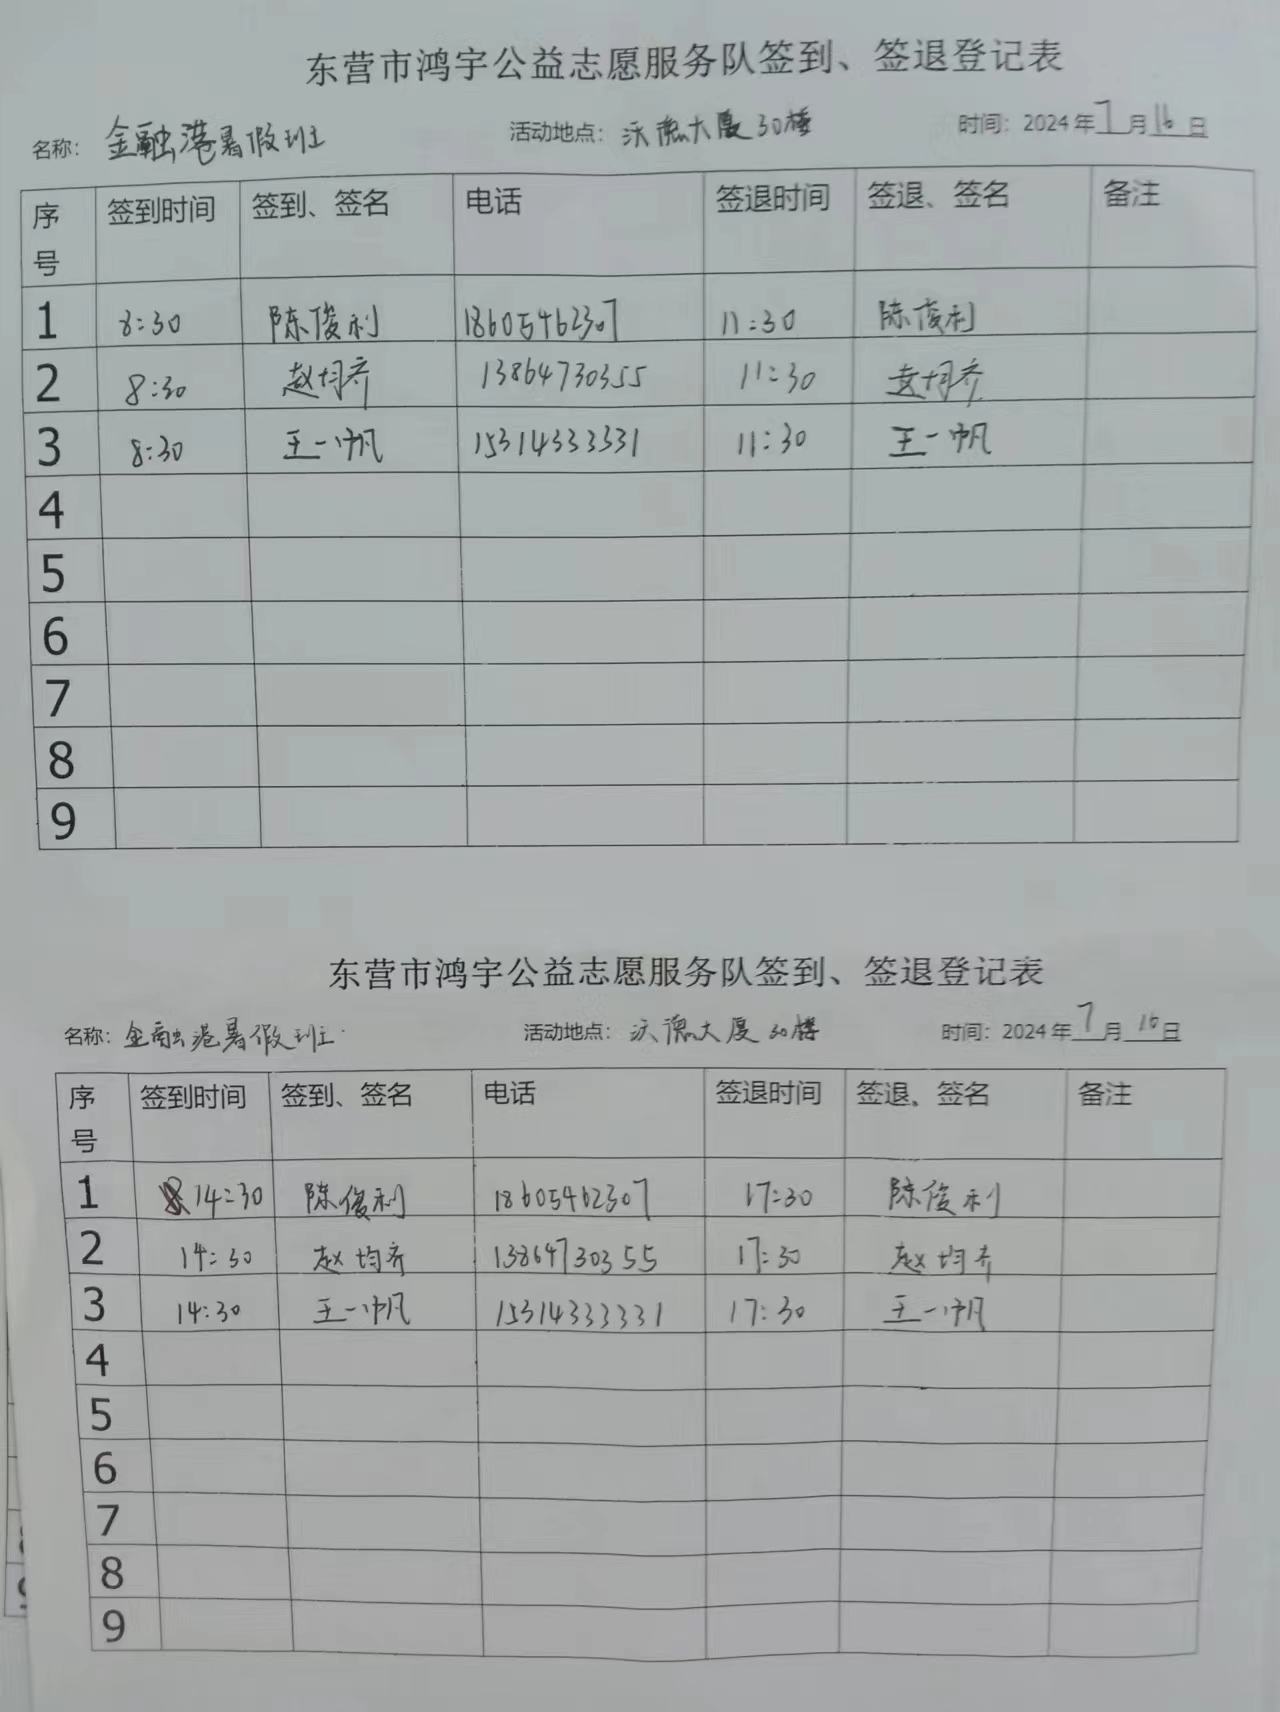 东营市鸿宇公益志愿服务队签到、签退登记表
名称：金融港暑假班 活动地点：沃德大厦30楼 时间：2024年7月16日
序号 签到时间 签到、签名 电话 签退时间 签退、签名 备注
1 8:30 陈俊利 18605462307 11:30 陈俊利
2 8:30 赵均齐 13864730355 11:30 赵均齐
3 8:30 王一帆 15314333331 11:30 王一帆
4
5
6
7
8
9
东营市鸿宇公益志愿服务队签到、签退登记表
名称：金融港暑假班 活动地点：沃德大厦30楼 时间：2024年7月16日
序号 签到时间 签到、签名 电话 签退时间 签退、签名 备注
1 14:30 陈俊利 18605462307 17:30 陈俊利
2 14:30 赵均齐 13864730355 17:30 赵均齐
3 14:30 王一帆 15314333331 17:30 王一帆
4
5
6
7
8
9